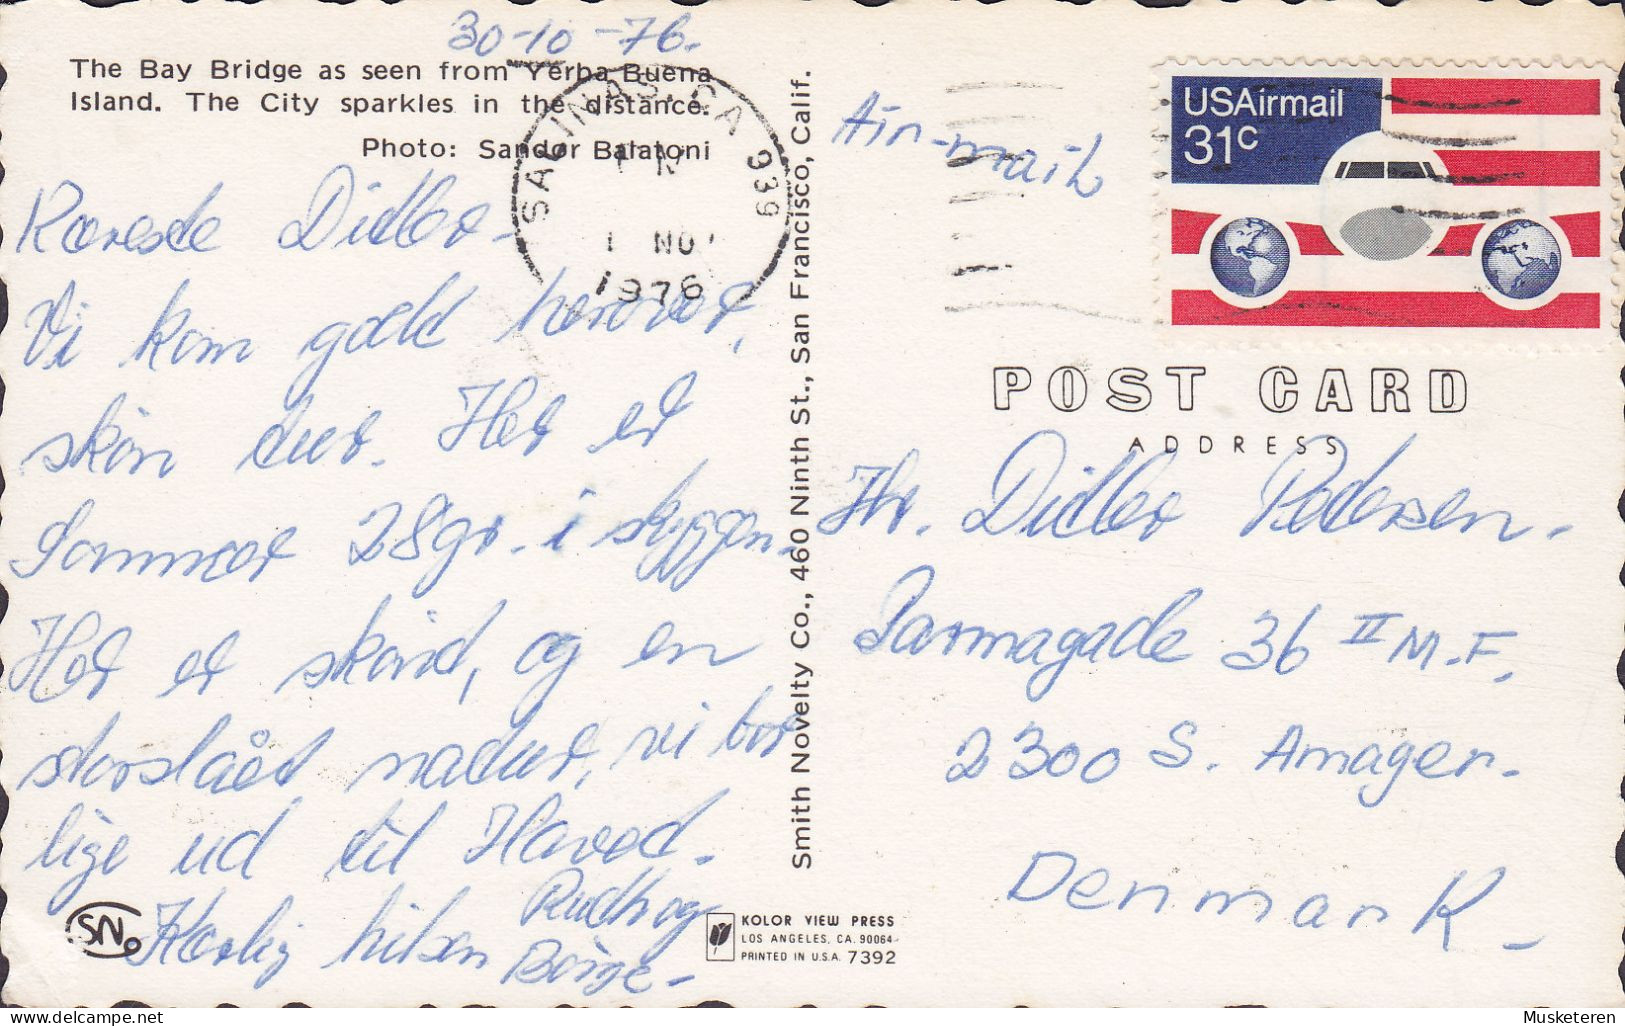 30-10-76.
The Bay Bridge as seen from Yerba Buena
Island. The City sparkles in the distance.
Photo: Sandor Balatoni
SALINAS, CA 939
PM
1 NOV
1976
Kæreste Ditlev-
Vi kom godt herover,
skøn tur. Her er
Sommer 28gr. i skyggen.
Her er skønt, og en
storslået natur, vi bor
lige ud til Havet.
Kærlig hilsen Ruth og
Børge-
SN
Smith Novelty Co., 460 Ninth St., San Francisco, Calif.
KOLOR VIEW PRESS
LOS ANGELES, CA. 90064
PRINTED IN U.S.A. 7392
Air-mail
USAirmail
31c
POST CARD
ADDRESS
Hr. Ditlev Pedersen.
Parmagade 36 II M.F,
2300 S. Amager.
Denmark-
Musketeren